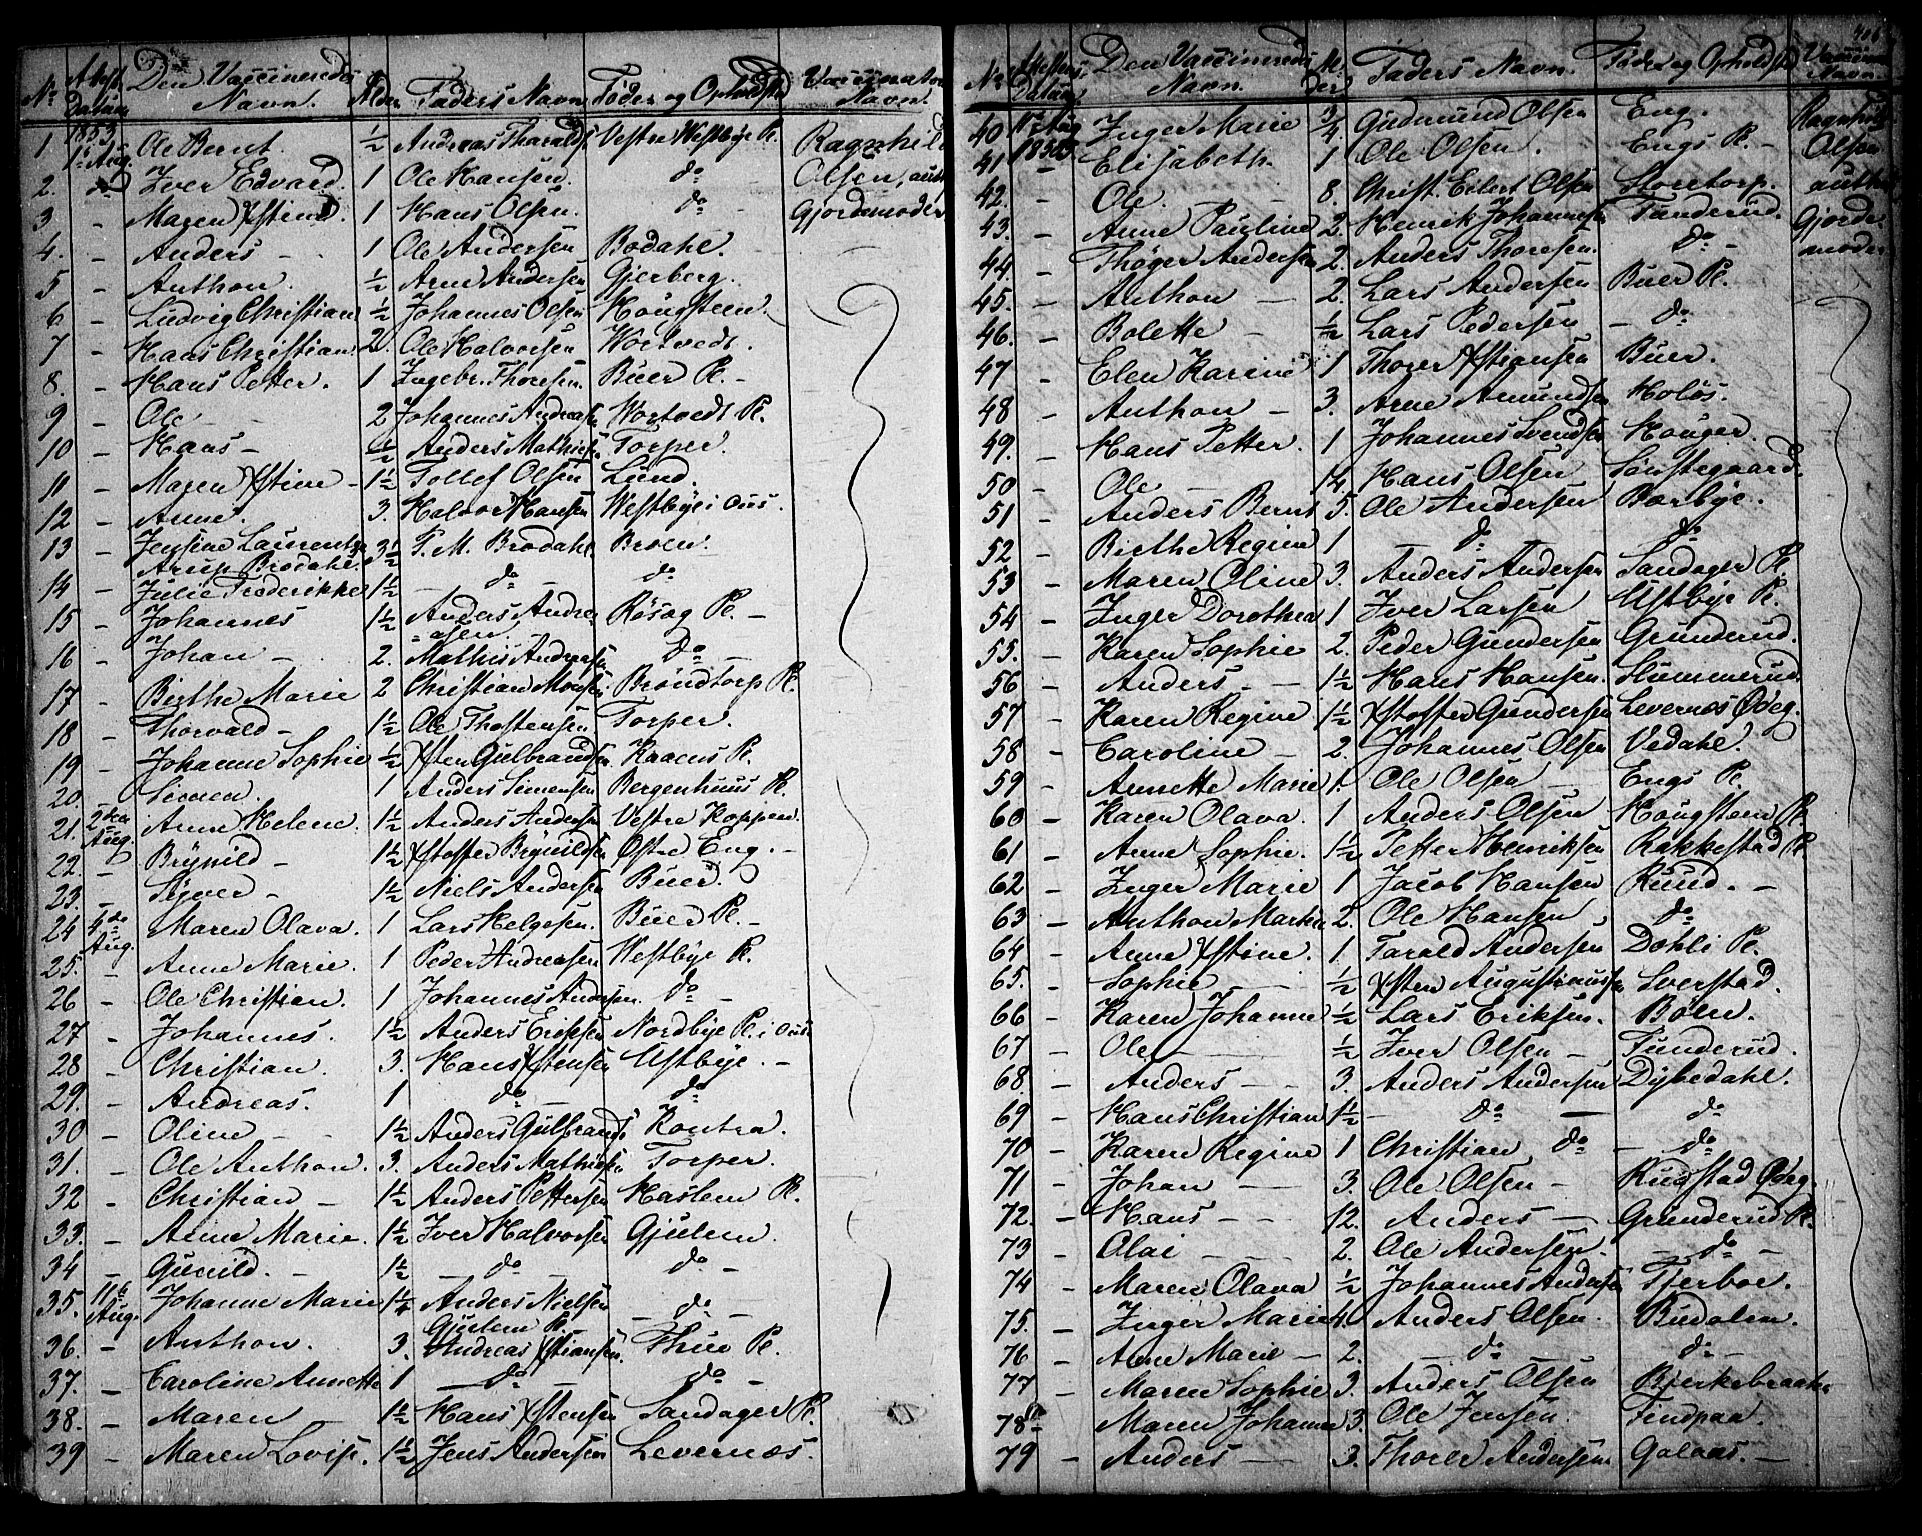 No Attest. Datum Den Vaccineredes Navn. Alder Faders Navn Føde og Opholdsted Vaccinateurens Navn.
1 1853 1ste Aug. Ole Bernt. ½ Andreas Tharalds. Vestre Westbye Pl. Ragnhild
2. do Iver Edvard. 1 Ole Hansen. do Olsen, auth
3 - Maren Xstine. 1 Hans Olsen. do Gjordemoder
4. - Anders - 1 Ole Andersen Bodahl.
5 - Anthon. ½ Arne Andersen Gjerberg.
6 - Ludvig Christian ½ Johannes Olsen Hougsteen.
7 - Hans Christian. 2. Ole Halvorsen Wortvedt.
8. - Hans Petter. 1 Ingebr. Thoresen. Buer Pl. -
9 - Ole - 2 Johannes Andreasen Wortvedt Pl.
10 - Hans - ½ Anders Mathisen Torper.
11 - Maren Xstine - 1½ Tollef Olsen Lund.
12 - Anne. 3. Halvor Hansen Westbye i Aas.
13 - Jensine Laurentze Arup Brodahl. 3½ P. M. Brodahl Broen.
14 - Julie Frederikke 1½ - do - do
15 - Johannes 1½ Anders Andreasen. Røsæg Pl. -
16 - Johan - 2. Mathis Andersen do -
17 - Birthe Marie 2 Christian Monsen Brøndtorp Pl.
18 - Thorvald - 1½ Ole Thostensen Torper.
19 - Johanne Sophie ½ Xsten Gulbrandsen. Kaaens Pl.
20. - Simen. 1 Anders Simensen Bergenhuus Pl.
21. 2den Aug. Anne Helene. 1½ Anders Andersen Vestre Koppen.
22. - Brynild - 1½ Xstoffer Brynildsen Østre Eng. -
23. - Syver - 1½ Niels Andersen Buer.
24 4de Aug. Maren Olava. 1 Lars Helgesen. Buer Pl. -
25. - Anne Marie. 1 Peder Andreasen Westbye Pl.
26 - Ole Christian. 1 Johannes Andersen. do -
27 - Johannes. 1½ Anders Ericksen Nordbye Pl. i Aas
28 - Christian. 3. Hans Xstensen Ustbye. -
29. - Andreas. 1 do - do
30 - Oline - - 1½ Anders Gulbrands. Kontra.
31. - Ole Anthon. 3. Anders Mathisen Torper.
32 - Christian - 1½ Anders Pettersen Haslem Pl.
33. - Anne Marie. 1½ Iver Halvorsen Gjulem.
34 - Gunild. - 1½ - do - do -
35. 11te Aug. Johanne Marie 1¼ Anders Nielsen Gjulem Pl. - do -
36. - Anthon. 3. Andreas Xstiansen. Thue Pl.
37. - Caroline Annette 1 - do - do -
38. - Maren - 1½ Hans Xstensen Sandager Pl.
39 - Maren Lovise. 1½ Jens Andersen Levernæs.
406
No Attestens Datum Den Vaccineredes Navn. Alder Faders Navn. Føde og Opholdsted Vaccinat. Navn.
40 11te Aug Inger Marie ¾ Gudmund Olsen Eng. Ragnhild
41 1853 Elisabeth. 1 Ole Olsen. Engs Pl. Olsen
42. - Ole. - 8. Christ. Eilert Olsen Storetorp. auth
43. - Anne Pauline 2. Henrik Johannesen Tanderud. Gjorde
44. - Thøger Andersen 2. Anders Thoresen. do - moder
45. - Anthon - 2. Lars Andersen Buer Pl.
46. - Bolette - ½ Lars Pedersen - do
47 - Elen Karine 1 Thorer Xstiansen Buer.
48 - Anthon - 3. Arne Amundsen Holøs.
49. - Hans Petter. 1 Johannes Svendsen Houger.
50 - Ole - 14. Hans Olsen Sønstegaard.
51 - Anders Bernt 5. Ole Andersen Borbye.
52 - Birthe Regine 1 do - do
53 - Maren Oline 3. Anders Andersen Sandager Pl.
54 - Inger Dorothea 1 Iver Larsen Ustbye Pl.
55. - Karen Sophie 2. Peder Gundersen Grunderud.
56 - Anders - 1½ Hans Hansen. Hummerud.
57 - Karen Regine 1½ Xstoffer Gundersen Levernæs Ødeg.
58 - Caroline - 2. Johannes Olsen Vedahl.
59 - Annette Marie 1. Ole Olsen Engs Pl.
60 - Karen Olava. 1 Anders Olsen Hougsteen Pl
61 - Anne Sophie. 1½ Petter Henriksen Rakkestad Pl
62 - Inger Marie 1 Jacob Hansen Ruud. -
63 - Anthon Martin 2. Ole Hansen do
64 - Anne Xstine. 1. Tarald Andersen Dahli Pl.
65. - Sophie - ½ Xsten Augustinussen Sverstad.
66 - Karen Johanne ½ Lars Eriksen. Bøen.
67 - Ole - ½ Iver Olsen - Tunderud.
68. - Anders - - 3. Anders Andersen Dybedahl.
69 - Hans Christian 1½ - do - do
70 - Karen Regine 1 Christian do - do
71 - Johan - 3. Ole Olsen - Rugstad Ødeg.
72. - Hans - - 12. Anders - Grunderud Pl.
73 - Olai - - 2. Ole Andersen. - do -
74 - Maren Olava ½ Johannes Andersen Tjerboe.
75. - Inger Marie 4. Anders Olsen. Budalen.
76 - Anne Marie - 2. - do - do -
77 - Maren Sophie 3. Anders Olsen Bjerkebraate
78 - Maren Johanne 3. Ole Jensen. Findpaa.
79 - Anders - 3. Thorer Andersen Galaas. -